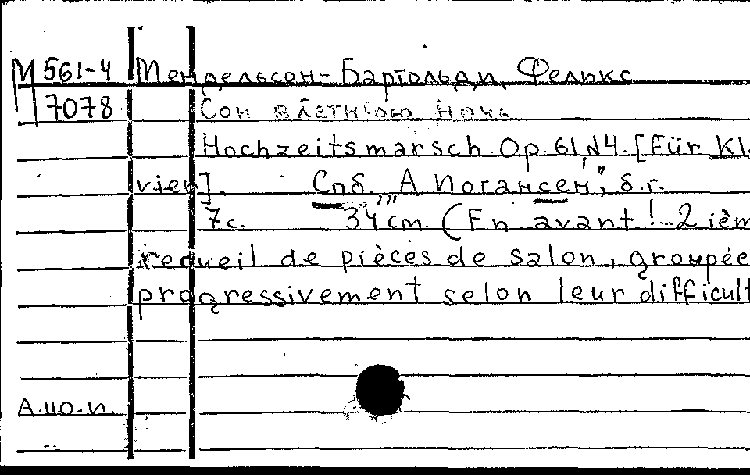 М 561-4 Мендельсон-Бартольди, Феликс
7078 Сон в летнюю ночь
Hochzeitsmarsch Op. 61, N4. [Für Kla
vier]. Спб. „А Иогансен", б.г.
7с. 34 см (En avant! 2 ièm
recueil de pièces de salon, groupée
progressivement selon leur difficult